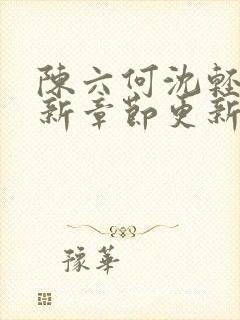 陳六何沈輕
新章節更新
豫華